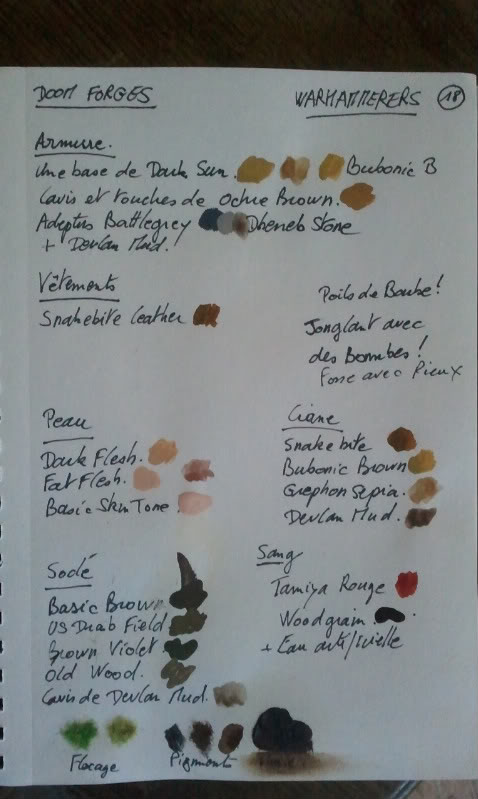 DOOM FORGES
WARHAMMERERS 18
Armure.
Une base de Dark Sun. Bubonic B
Lavis et touches de Ochre Brown.
Adeptus Battlegrey Dheneb Stone
+ Devlan Mud.
Vêtements
Snakebite Leather
Poils de Barbe!
Jonglant avec
des Bombes!
Fosse avec Pieux
Peau
Dark Flesh.
Fat Flesh.
Basic Skin Tone.
Snakebite
Bubonic Brown
Gryphon Sepia.
Devlan Mud.
Soclé
Basic Brown
US Drab Field
Brown Violet
Old Wood.
Lavis de Devlan Mud.
Sang
Tamiya Rouge
Woodgrain.
+ Eau artificielle
Flocage
Pigments